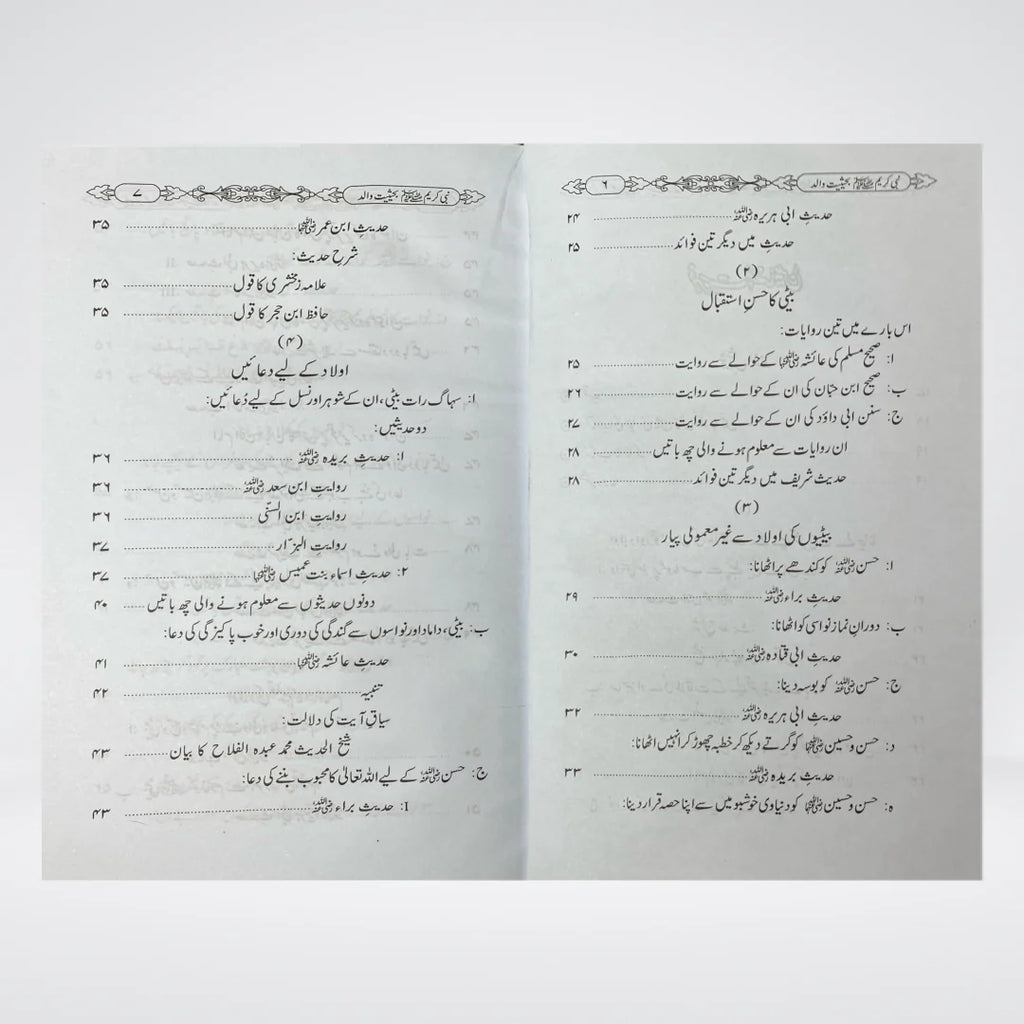 نبی کریم ﷺ بحیثیت والد ۶
حدیثِ ابی ہریرہ رضی اللہ عنہ ۲۴
حدیث میں دیگر تین فوائد ۲۵
(۲)
بیٹی کا حسنِ استقبال
اس بارے میں تین روایات:
ا: صحیح مسلم کی عائشہ رضی اللہ عنہا کے حوالے سے روایت ۲۵
ب: صحیح ابن حبّان کی ان کے حوالے سے روایت ۲۶
ج: سنن ابی داؤد کی ان کے حوالے سے روایت ۲۷
ان روایات سے معلوم ہونے والی چھ باتیں ۲۸
حدیث شریف میں دیگر تین فوائد ۲۸
(۳)
بیٹیوں کی اولاد سے غیر معمولی پیار
ا: حسن رضی اللہ عنہ کو کندھے پر اٹھانا:
حدیثِ براء رضی اللہ عنہ ۲۹
ب: دورانِ نماز نواسی کو اٹھانا:
حدیثِ ابی قتادہ رضی اللہ عنہ ۳۰
ج: حسن رضی اللہ عنہ کو بوسہ دینا:
حدیثِ ابی ہریرہ رضی اللہ عنہ ۳۲
د: حسن و حسین رضی اللہ عنہما کو گرتے دیکھ کر خطبہ چھوڑ کر انہیں اٹھانا:
حدیثِ بریدہ رضی اللہ عنہ ۳۳
ہ: حسن و حسین رضی اللہ عنہما کو دنیاوی خوشبو میں سے اپنا حصہ قرار دینا:
نبی کریم ﷺ بحیثیت والد ۷
حدیثِ ابن عمر رضی اللہ عنہما ۳۵
شرحِ حدیث:
علامہ زمخشری کا قول ۳۵
حافظ ابن حجر کا قول ۳۵
(۴)
اولاد کے لیے دعائیں
ا: سہاگ رات بیٹی، ان کے شوہر اور نسل کے لیے دُعائیں:
دو حدیثیں:
۱: حدیثِ بریدہ رضی اللہ عنہ ۳۶
روایتِ ابن سعد رضی اللہ عنہ ۳۶
روایتِ ابن السنّی ۳۶
روایتِ البزّار ۳۷
۲: حدیثِ اسماء بنت عمیس رضی اللہ عنہا ۳۷
دونوں حدیثوں سے معلوم ہونے والی چھ باتیں ۴۰
ب: بیٹی، داماد اور نواسوں سے گندگی کی دوری اور خوب پاکیزگی کی دعا:
حدیثِ عائشہ رضی اللہ عنہا ۴۱
تنبیہ ۴۲
سیاقِ آیت کی دلالت:
شیخ الحدیث محمد عبدہ الفلاح کا بیان ۴۳
ج: حسن رضی اللہ عنہ کے لیے اللہ تعالیٰ کا محبوب بننے کی دعا:
I: حدیثِ براء رضی اللہ عنہ ۴۳